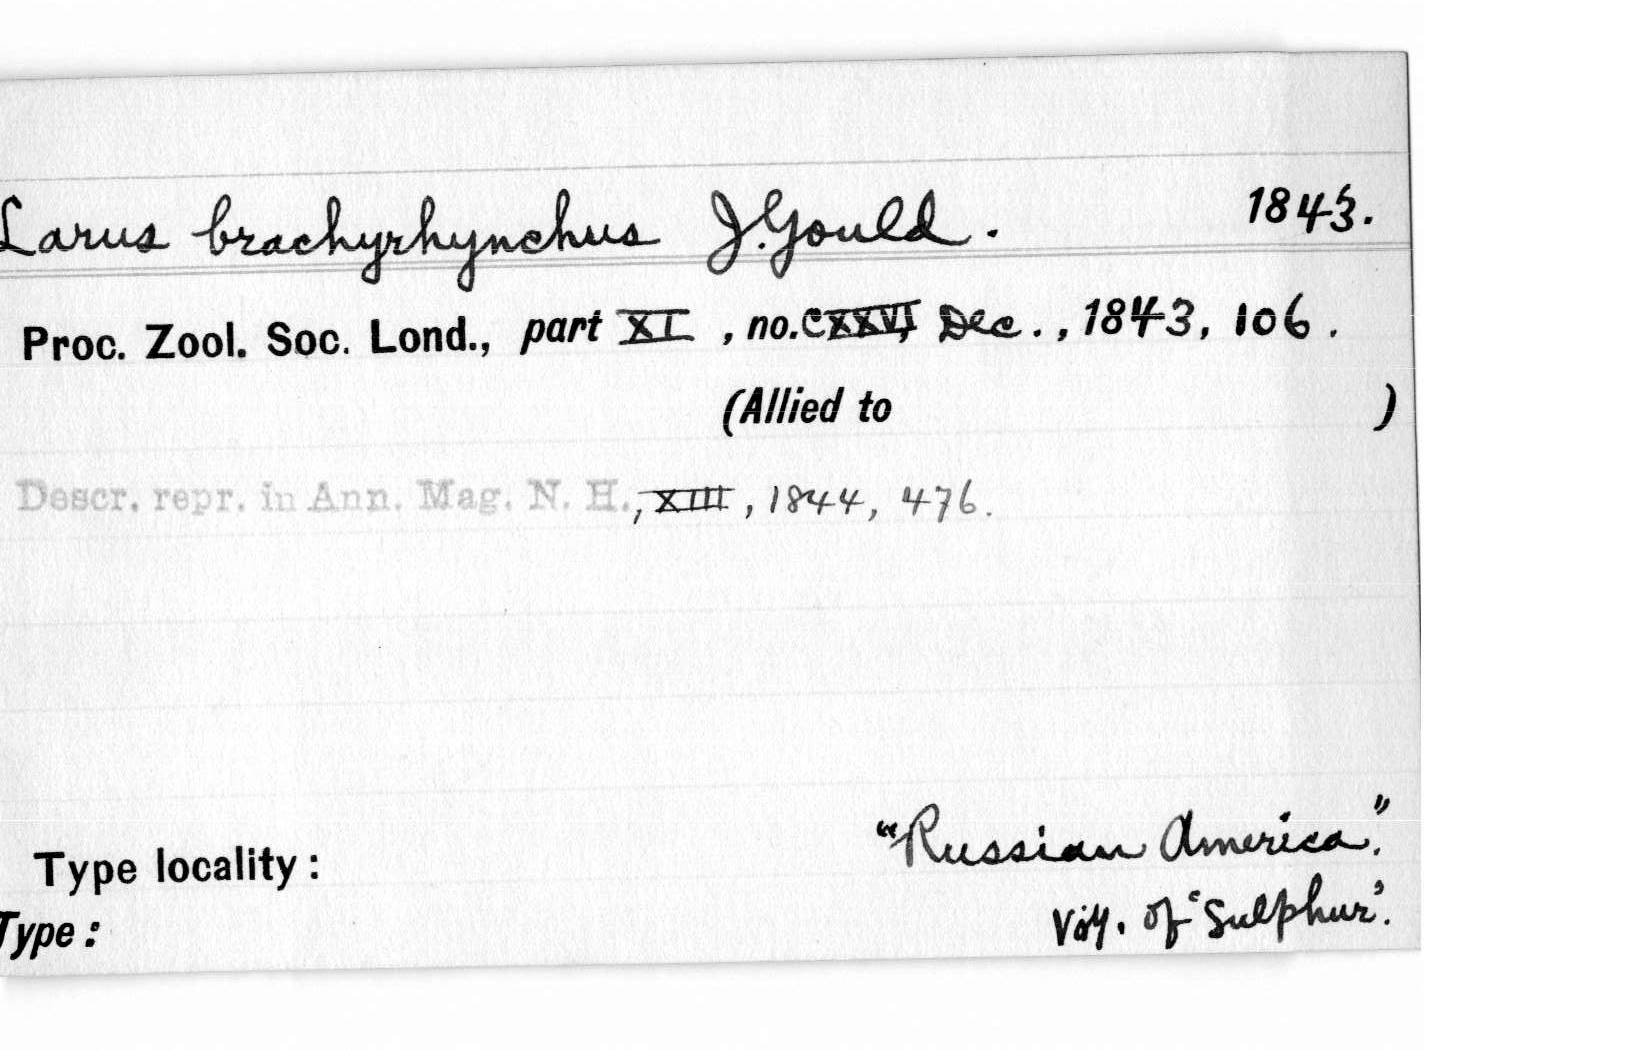 Larus brachyrhynchus J. Gould. 1843.
Proc. Zool. Soc. Lond., part XI, no. CXXVI, Dec., 1843, 106.
(Allied to )
Descr. repr. in Ann. Mag. N. H., XIII, 1844, 476.
"Russian America."
Type locality:
Voy. of 'Sulphur'.
Type: